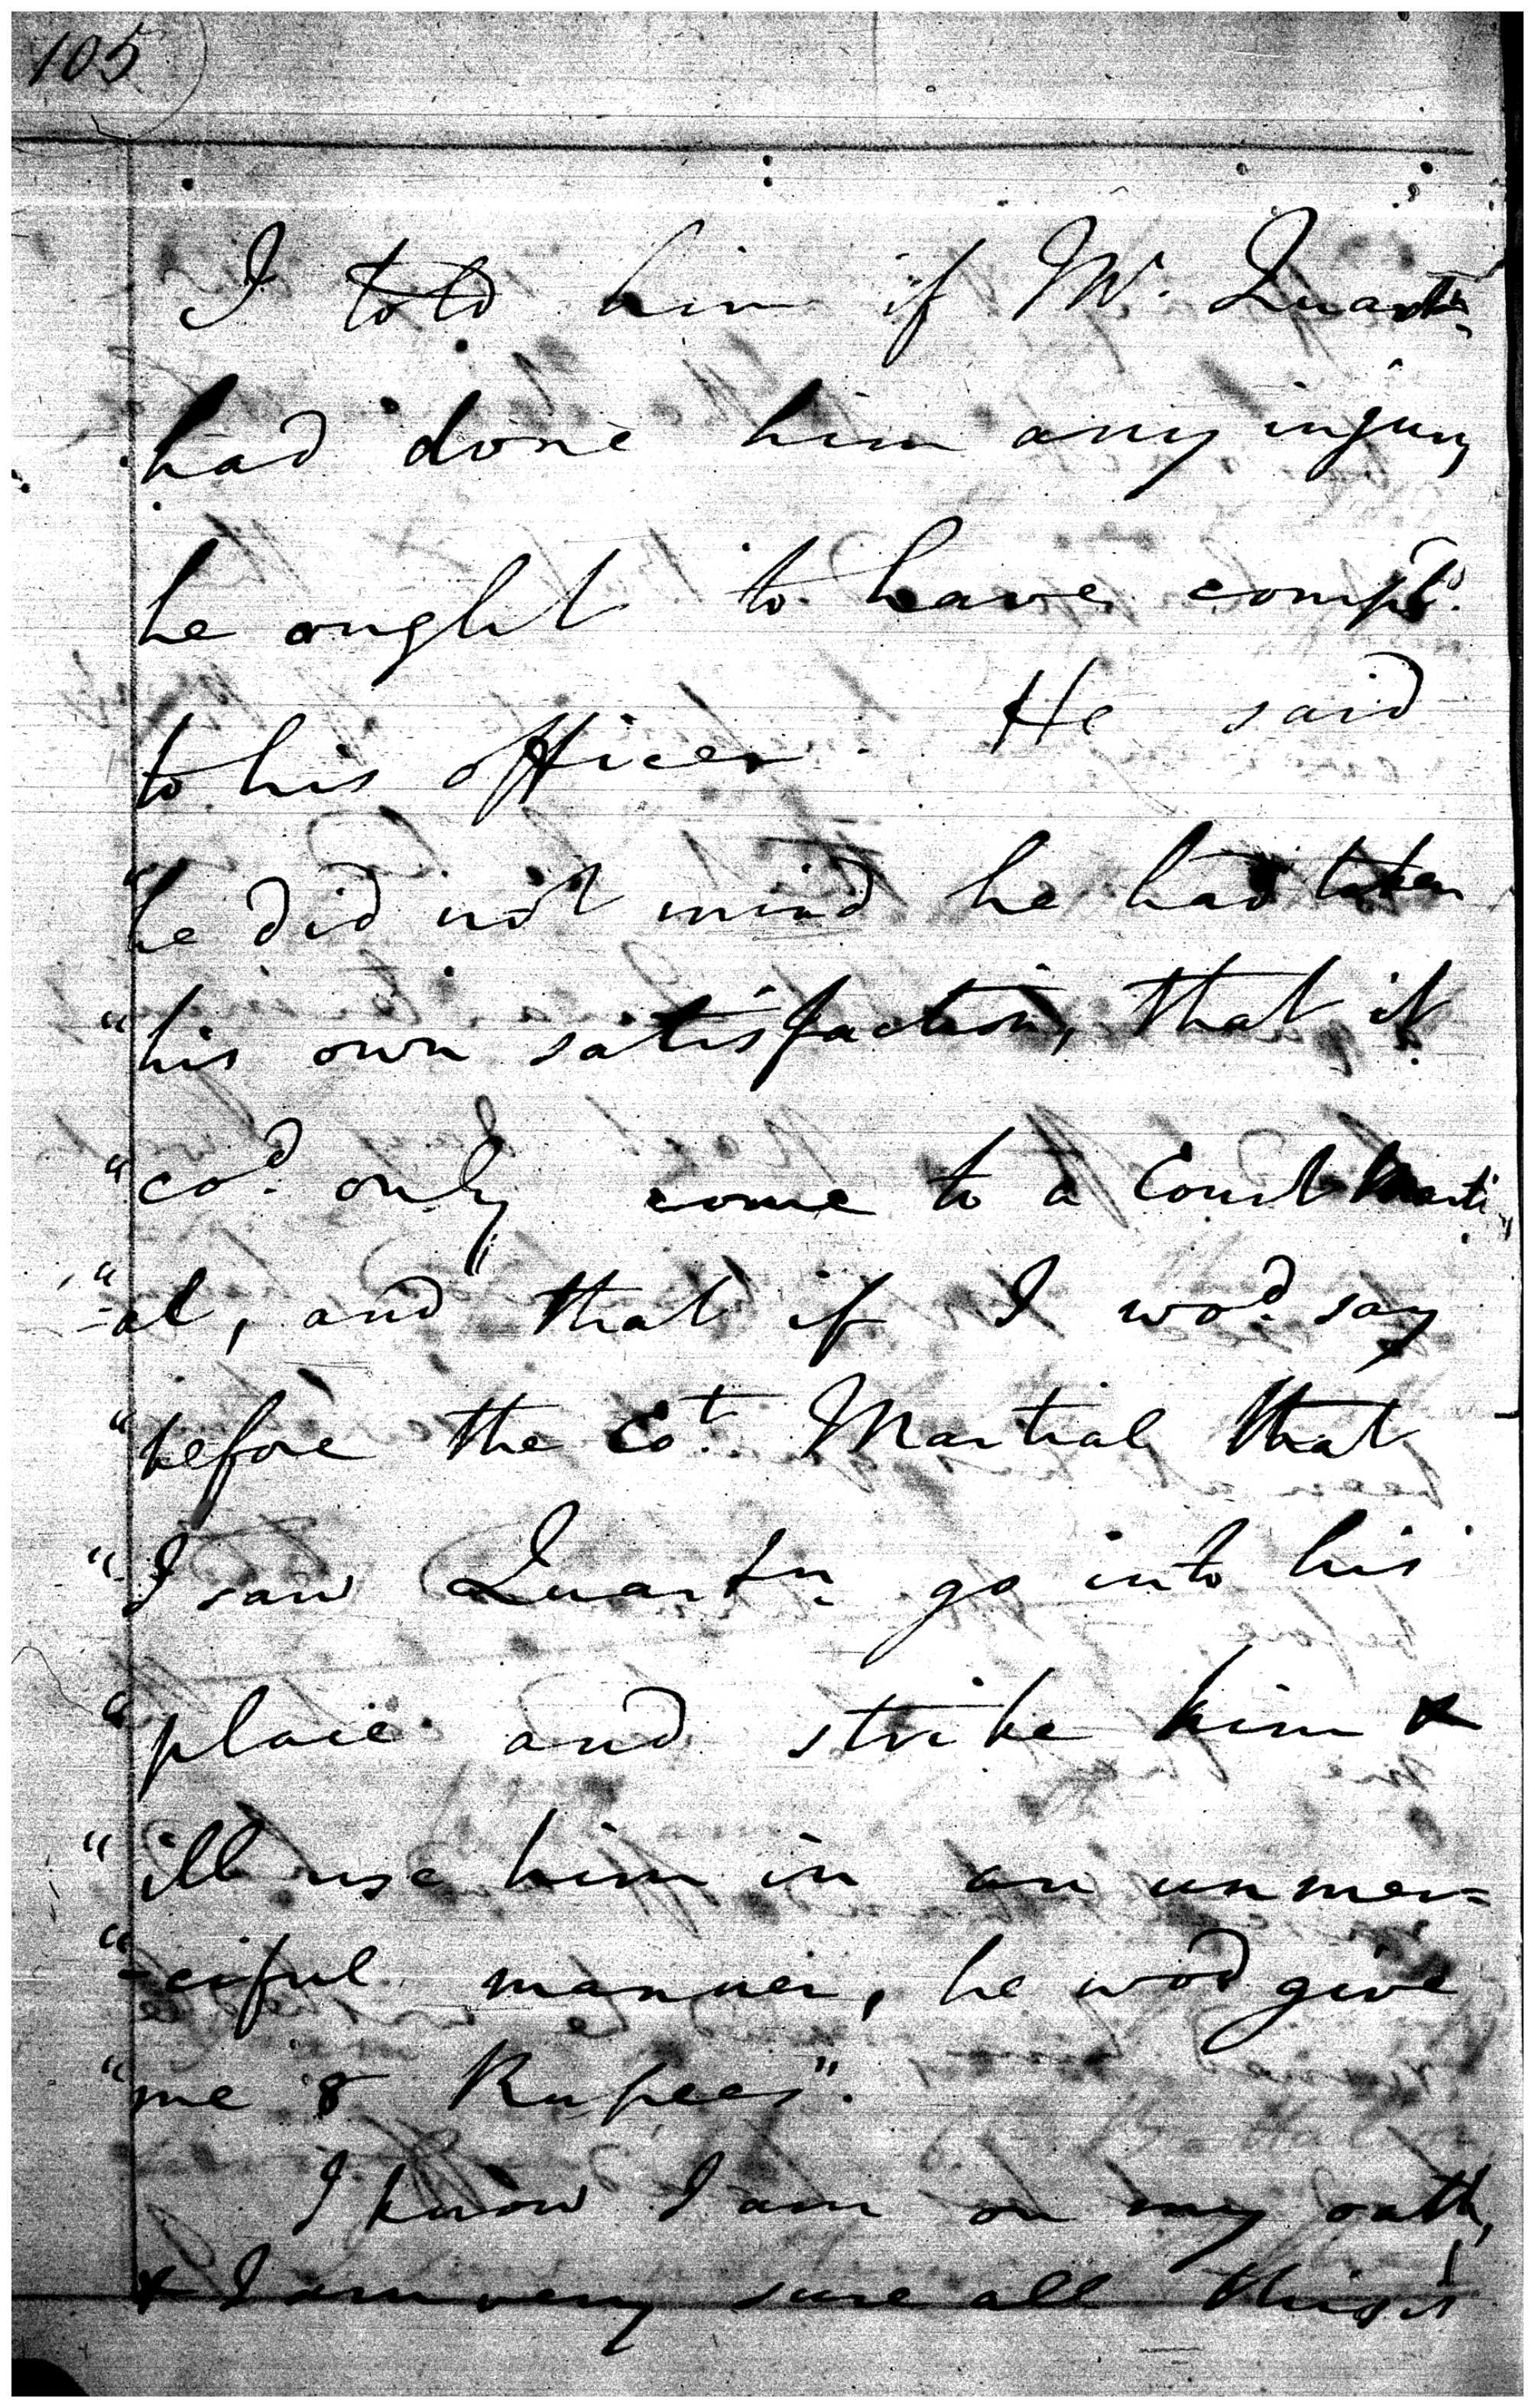 105
I told him if Mr. Quartr.
had done him any injury
he ought to have compd.
to his officer. He said
"he did not mind he had taken
"his own satisfaction, that it
"cod. only come to a Court Marti„
"-al, and that if I wod. say
"before the Ct. Martial that
"I saw Quartr. go into his
"place and strike him &
"ill use him in an unmer=
"-ciful manner, he wod give
"me 8 Rupees".
I know I am on my oath,
& I am very sure all this is